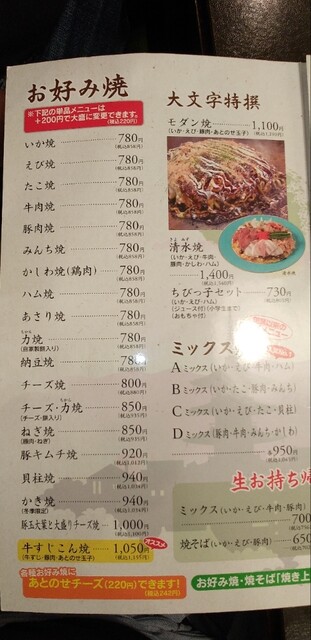 お好み焼
※下記の単品メニューは
+200円で大盛に変更できます。
(税込220円)
いか焼 780円
(税込858円)
えび焼 780円
(税込858円)
たこ焼 780円
(税込858円)
牛肉焼 780円
(税込858円)
豚肉焼 780円
(税込858円)
みんち焼 780円
(税込858円)
かしわ焼(鶏肉) 780円
(税込858円)
ハム焼 780円
(税込858円)
あさり焼 780円
(税込858円)
力焼 780円
(自家製餅入り) (税込858円)
納豆焼 780円
(税込858円)
チーズ焼 800円
(税込880円)
チーズ・力焼 850円
(チーズ・餅入り) (税込935円)
ねぎ焼 850円
(豚肉・ねぎ) (税込935円)
豚キムチ焼 920円
(税込1,012円)
貝柱焼 940円
(税込1,034円)
かき焼 940円
(冬季限定) (税込1,034円)
豚玉大葉と大盛りチーズ焼 1,000円
(税込1,100円)
牛すじこん焼 1,050円
(牛すじ・豚肉・あとのせ玉子) (税込1,155円)
オススメ
各種お好み焼に
あとのせチーズ(220円)できます!
(税込242円)
大文字特撰
モダン焼 1,100円
(いか・えび・豚肉・あとのせ玉子) (税込1,210円)
清水焼
(いか・えび・牛肉・
豚肉・かしわ・ハム)
1,400円
(税込1,540円)
清水焼
ちびっ子セット 730円
(いか・えび・ハム)
(ジュース付)(小学生まで)
(おもちゃ付)
ミックス
Aミックス(いか・えび・牛肉・ハム)
Bミックス(いか・たこ・豚肉・みんち)
Cミックス(いか・えび・たこ・貝柱)
Dミックス(豚肉・牛肉・みんち・かしわ)
各950円
(税込1,045円)
生お持ち帰
ミックス(いか・えび・牛肉・豚肉)
700
焼そば(いか・えび・豚肉)
650
お好み焼・焼そば「焼き上